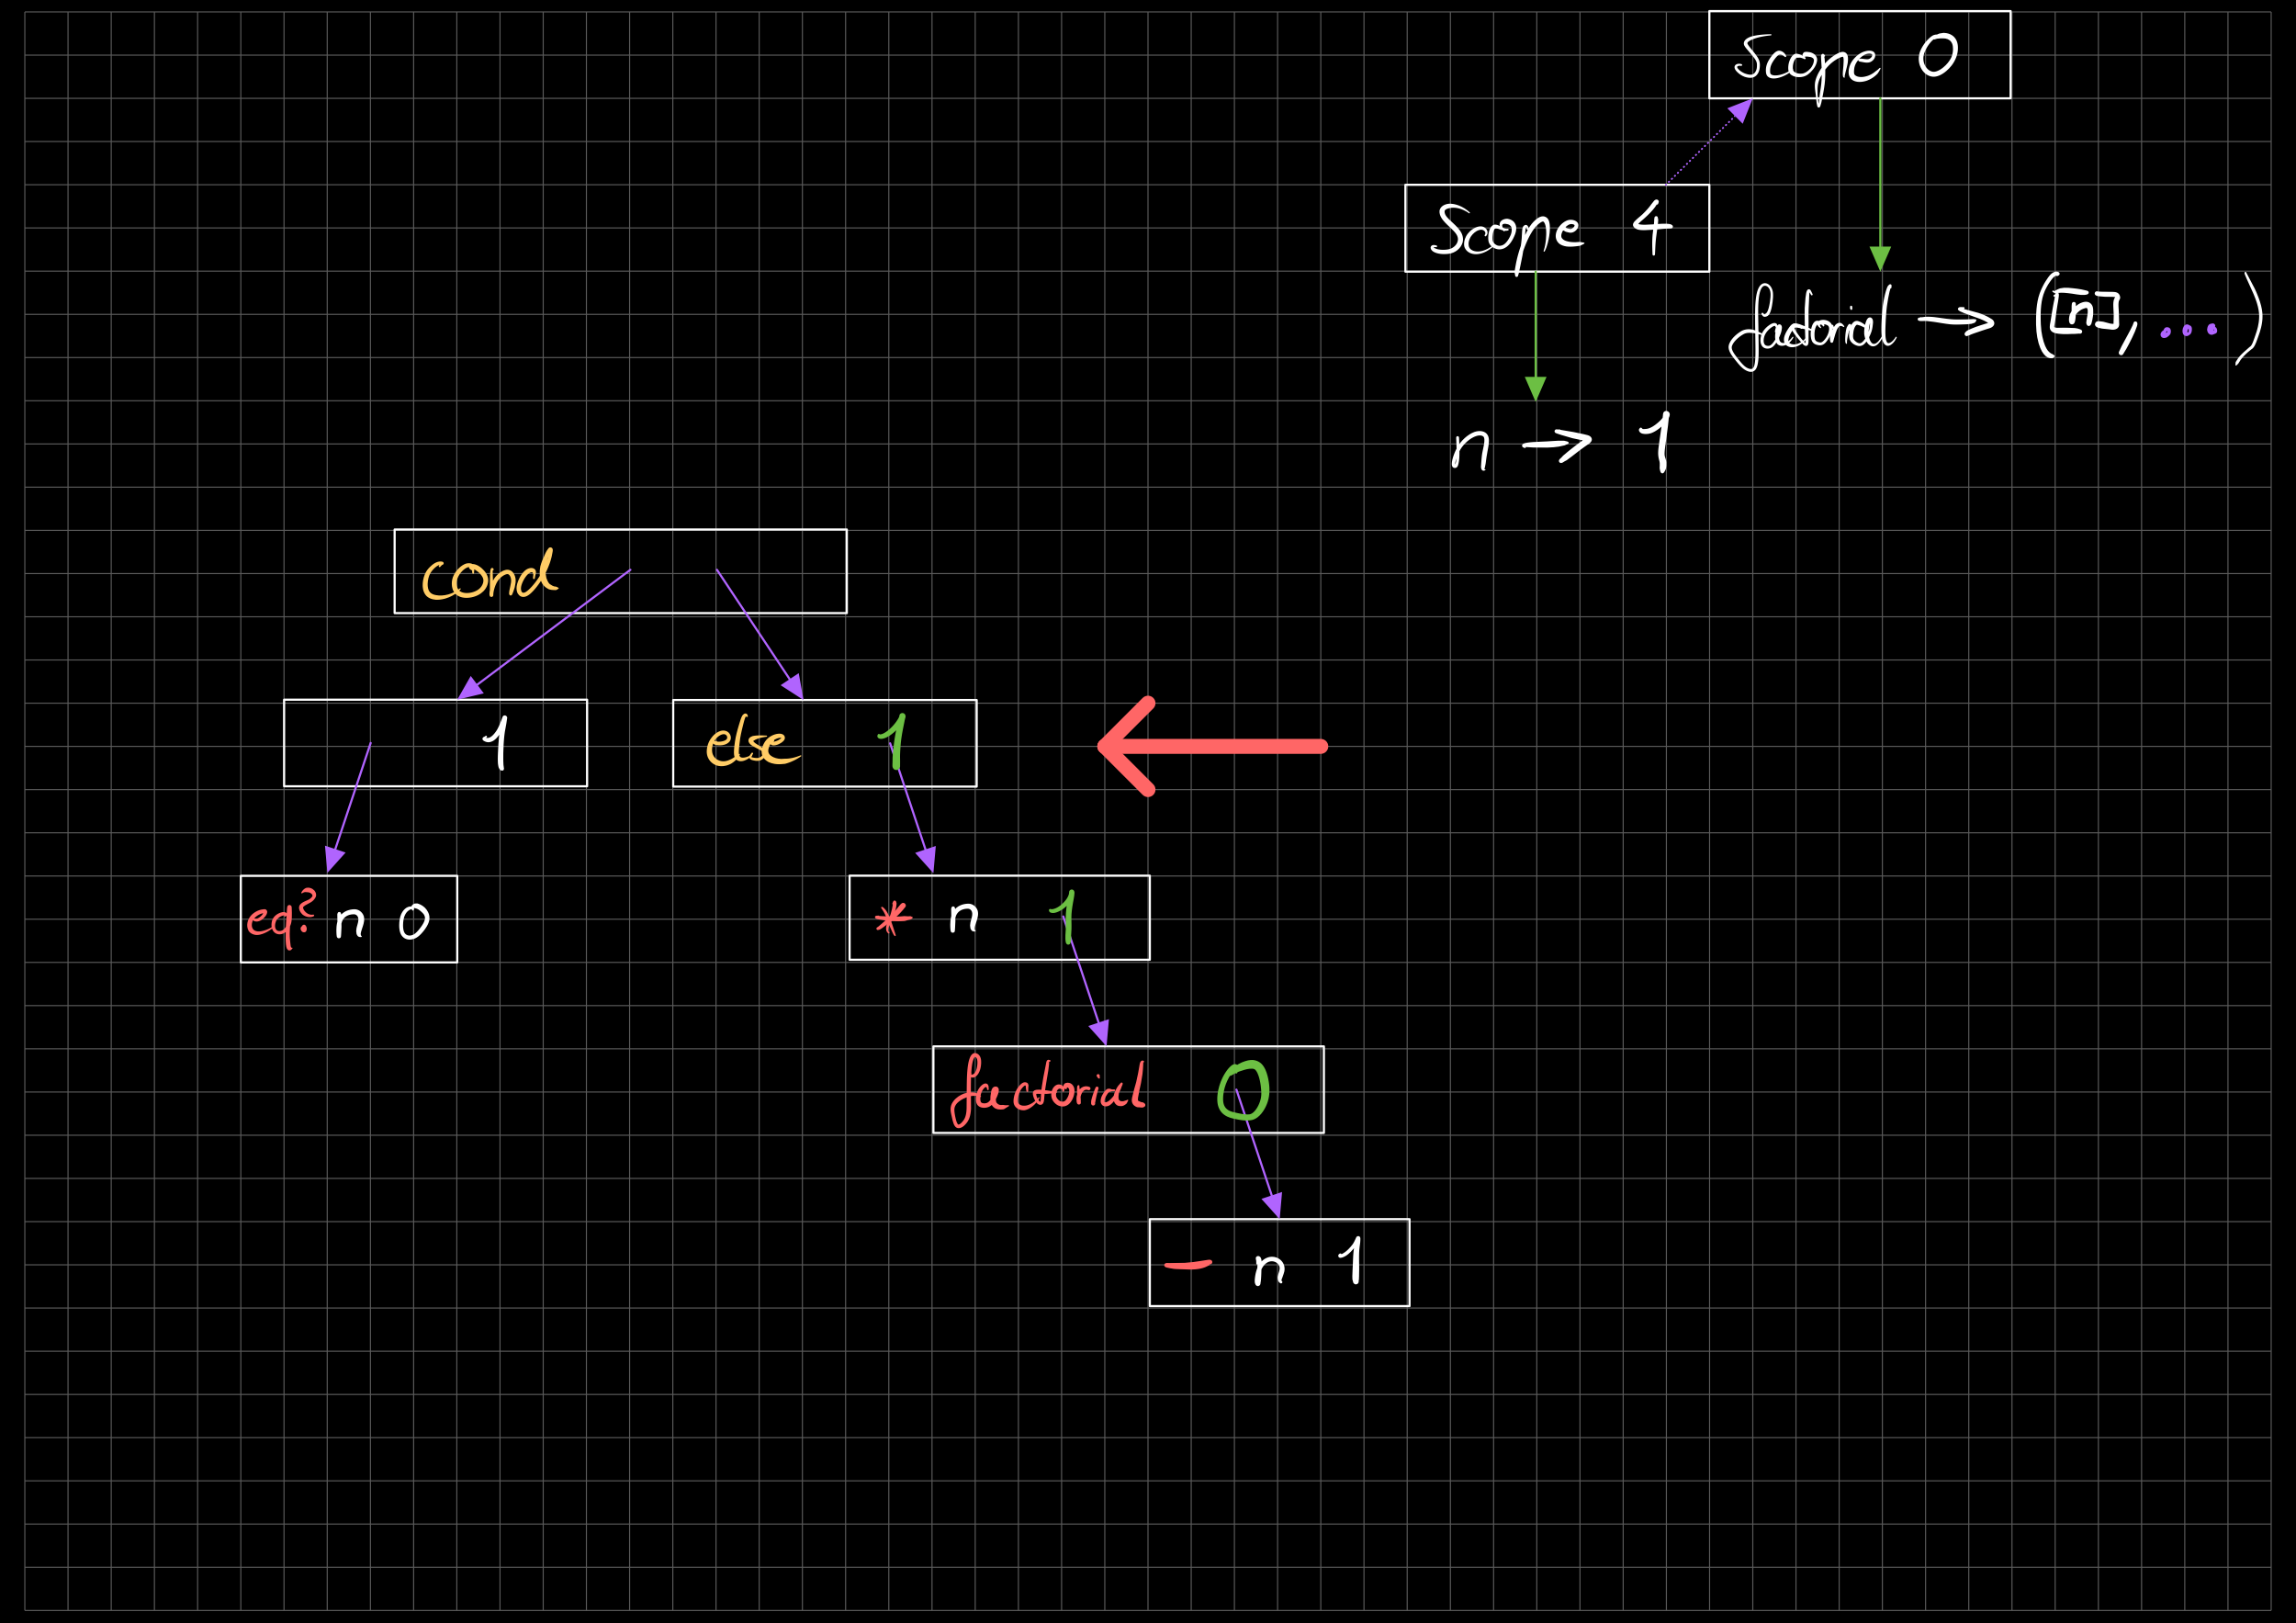 Scope 0
Scope 4
factorial → ([n], ...)
n → 1
cond
1
else 1
eq? n 0
* n 1
factorial 0
- n 1